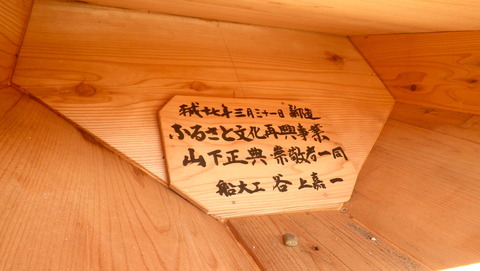 平成十七年三月三十一日 新造
ふるさと文化再興事業
山下正典 崇敬者一同
船大工 谷上嘉一